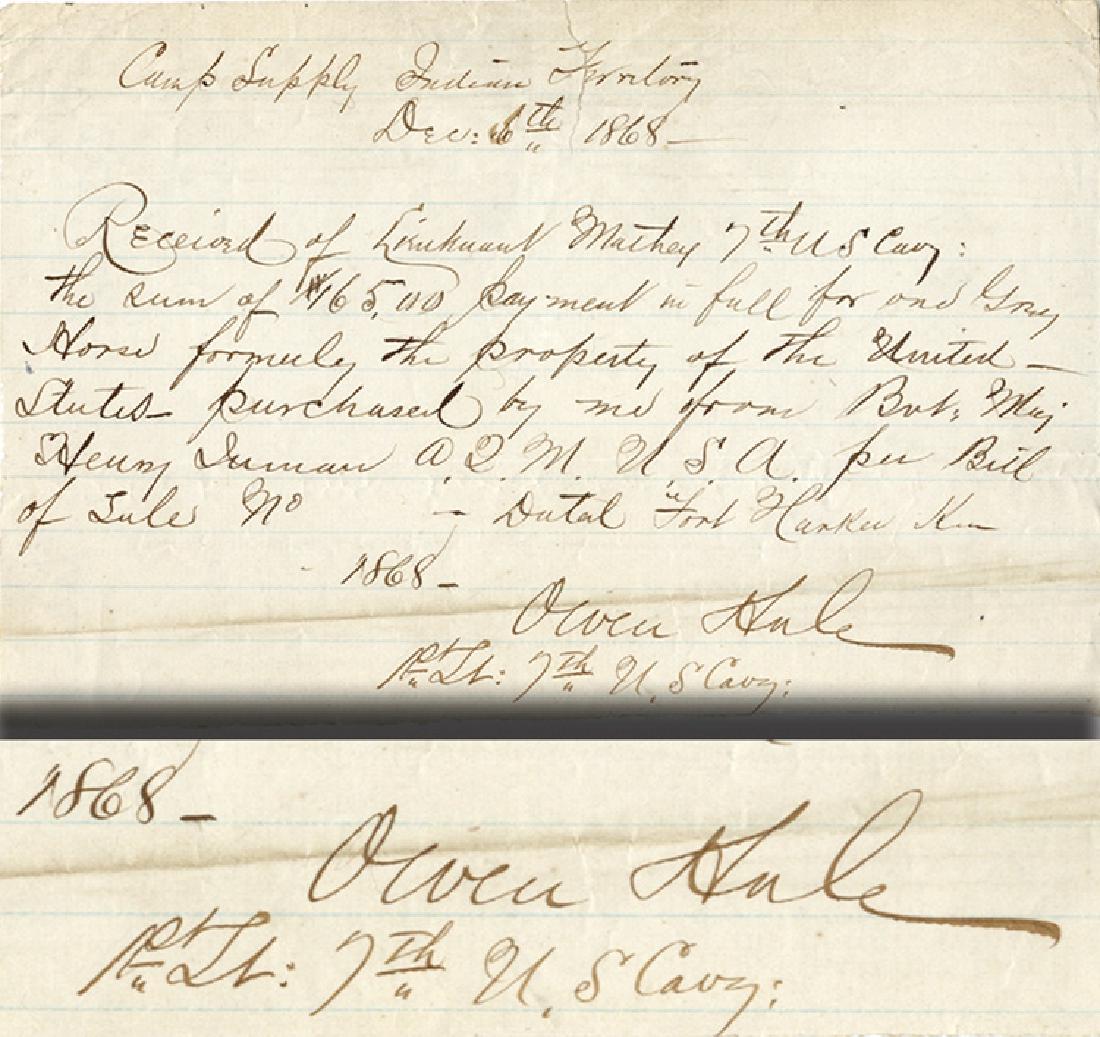 Camp Supply Indian Territory
Dec: 6th 1868 —
Received of Lieutenant Mathey 7th U S Cavy:
the sum of $165,00 payment in full for one Gray
Horse formerly the property of the United —
States purchased by me from Bvt: Maj
Henry Inman A. Q. M. U. S. A. per Bill
of Sale No — Dated Fort Harker Kan
1868 —
Owen Hale
1st Lt: 7th U. S Cavy:
1868 —
Owen Hale
1st Lt: 7th U. S Cavy: